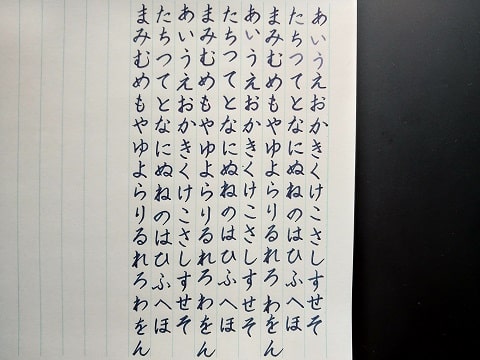 あいうえおかきくけこさしすせそ
たちつてとなにぬねのはひふへほ
まみむめもやゆよらりるれろわをん
あいうえおかきくけこさしすせそ
たちつてとなにぬねのはひふへほ
まみむめもやゆよらりるれろわをん
あいうえおかきくけこさしすせそ
たちつてとなにぬねのはひふへほ
まみむめもやゆよらりるれろわをん